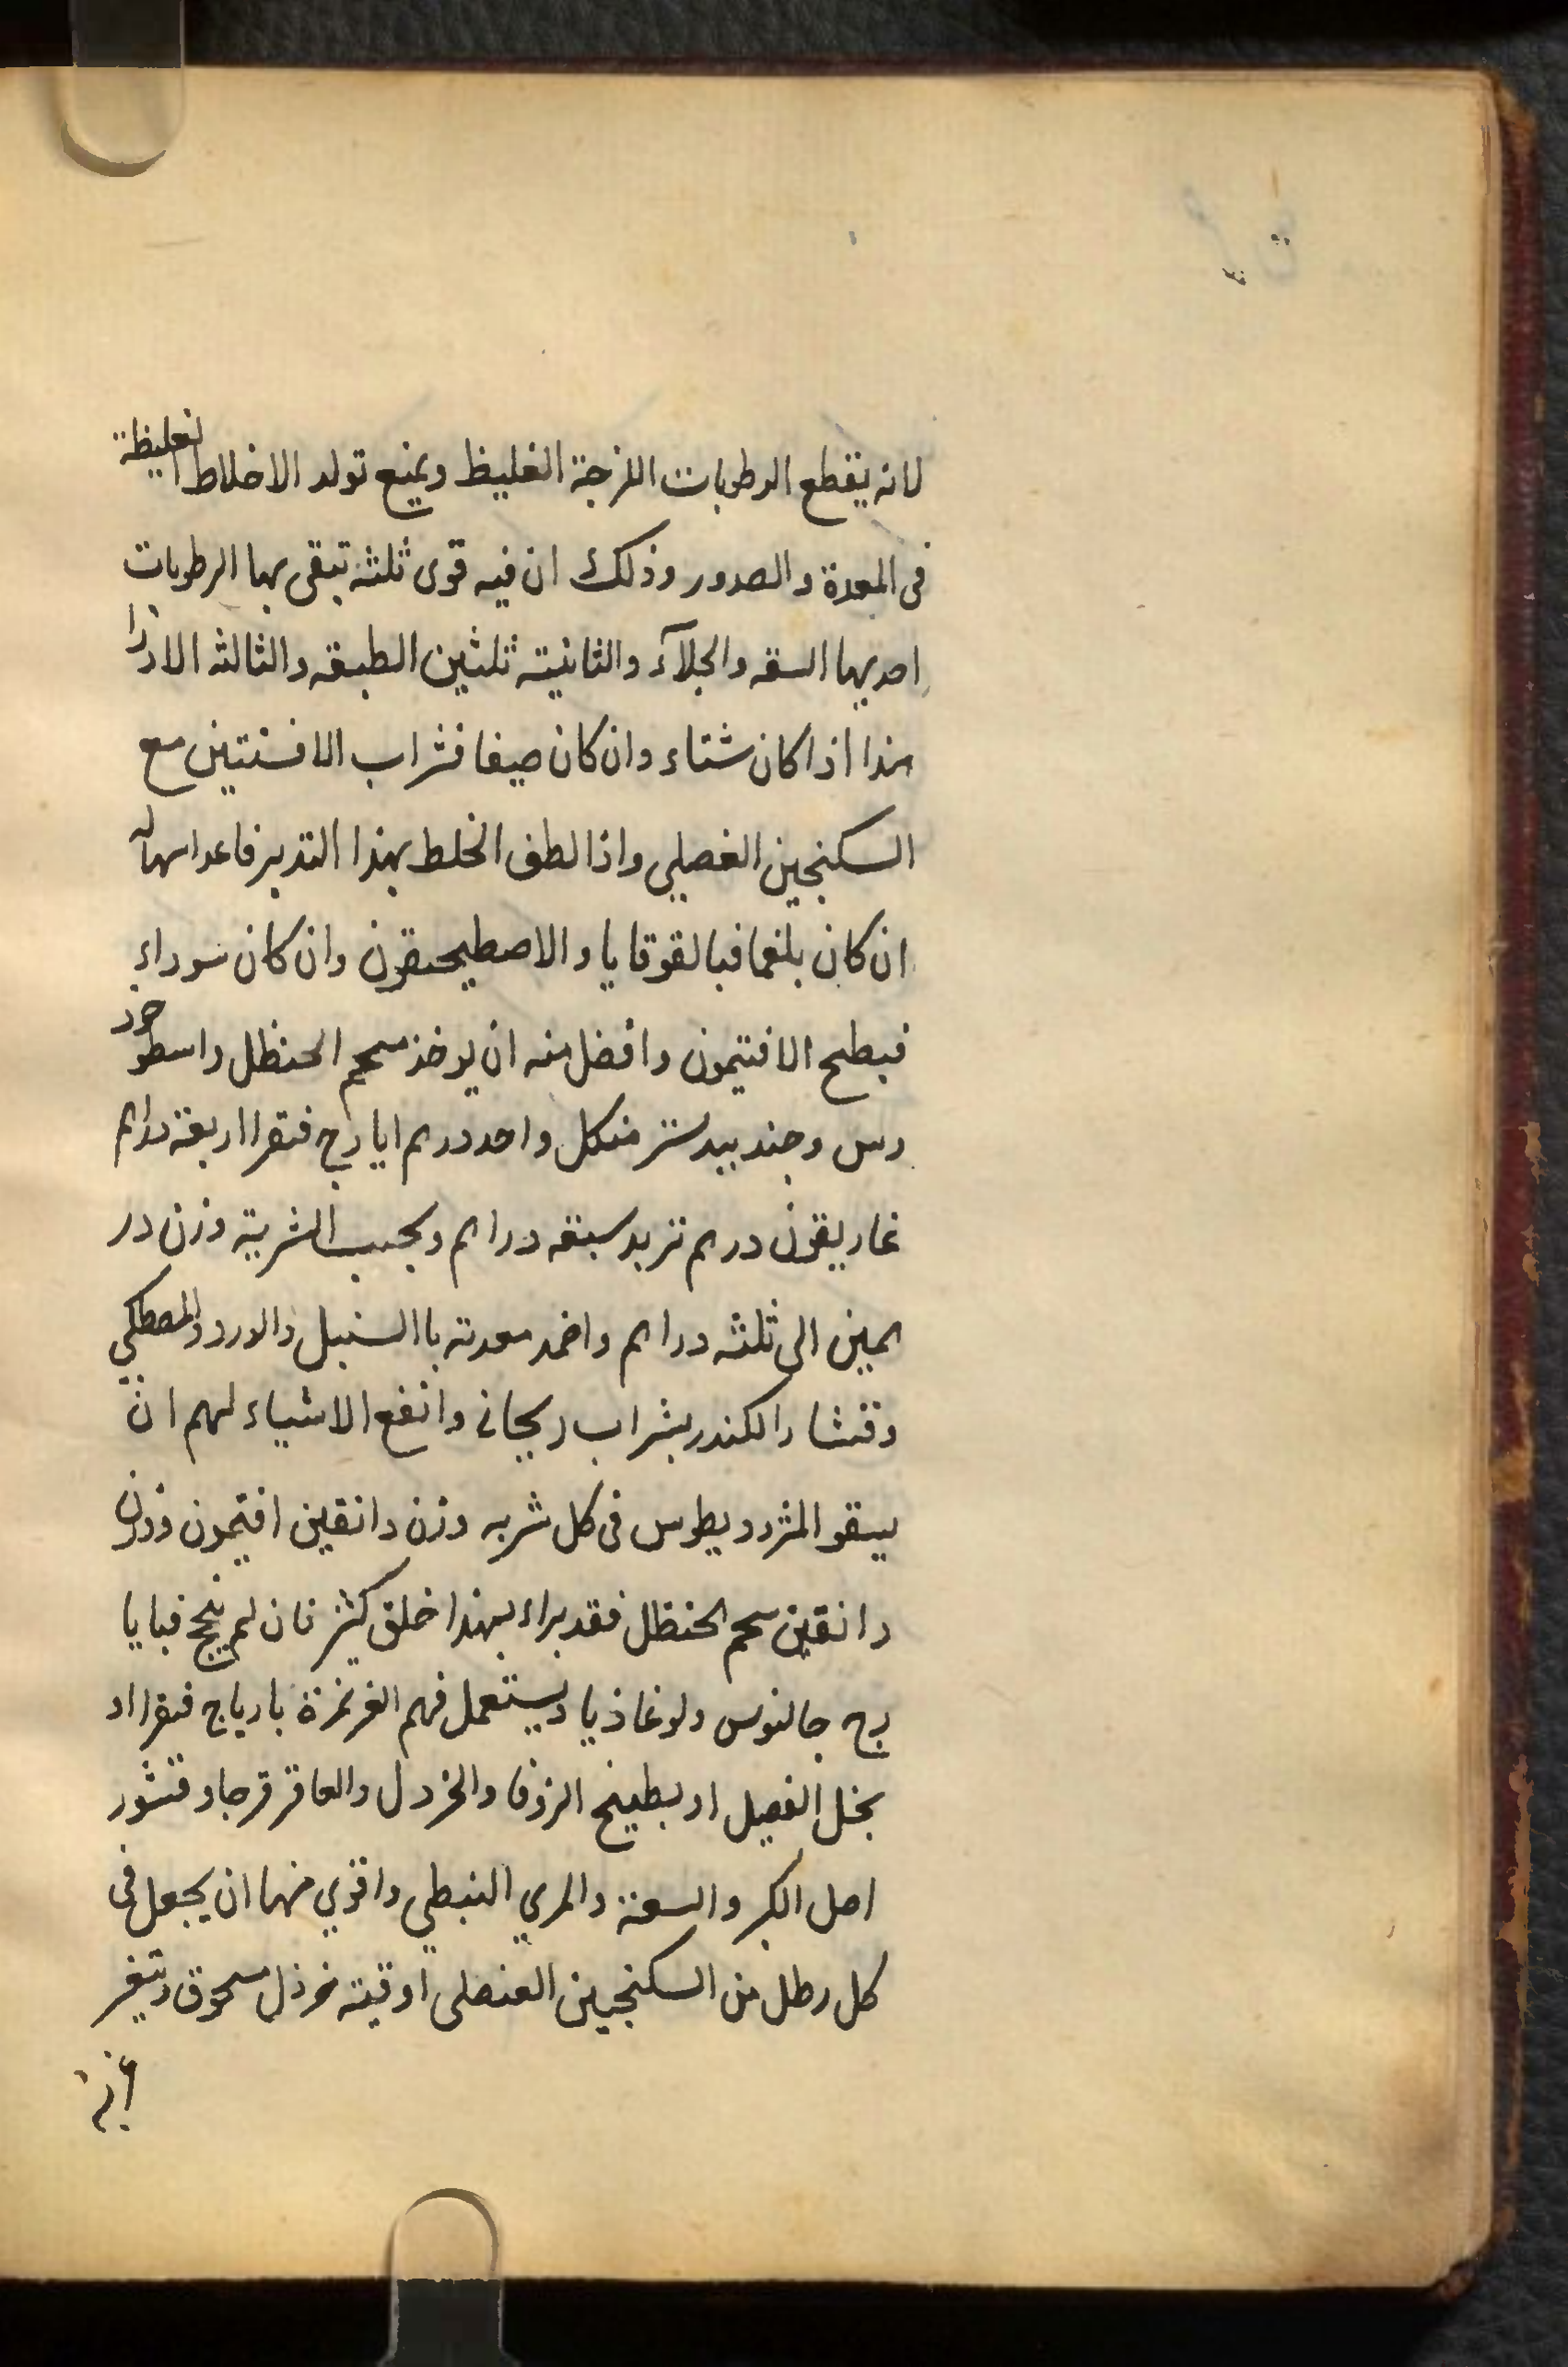 لانه يقطع الرطوبات اللزجة الغليظ ويمنع تولد الاخلاط الغليظة
فى المعدة والصدور وذلك ان فيه قوى ثلثة تبقى بها الرطوبات
احديهما السقه والجلآء والثانية ثلثين الطبقه والثالثه الادرا
هذا اذا كان شتاء وان كان صيفا فشراب الافسنتين مع
السكنجين الغصلي واذا لطف الخلط بهذا التدبير فاعد اسهاله
ان كان بلغما فبالقوقايا والاصطيحيقون وان كان سوداء
فبطبح الافتيمون وافضل منه ان يوخذ سحم الحنظل واسطوخود
رس وجند بيدستر منكل واحد درهم ايارج فيقرا اربعة دراهم
غاريقون درهم تربد سبعه دراهم ويحبب الشربة وزن در
همين الى ثلثه دراهم واضمد معدته باالسنبل والورد والمصطكي
وقشار الكندر بشراب ريحانى وانفع الاشياء لهم ان
يسقو المثرود يطوس فى كل شربه وزن دانقين افتيمون ووزن
دانقين سحم الحنظل فقد براء بهذا خلق كثير فان لم ينجح فبايا
رج جالنوس ولوغاذيا ويستعمل فهم الغرغرة بارياج فيقرا او
بخل الغصيل او بطبيخ الزوفا والخردل والعاقر قرحا وقشور
اصل الكبر والسعتر والمري النبطي واقوي منهما ان يجعل فى
كل رطل من السكنجبين العنصلى اوقية خرذل مسحوق ويتغر